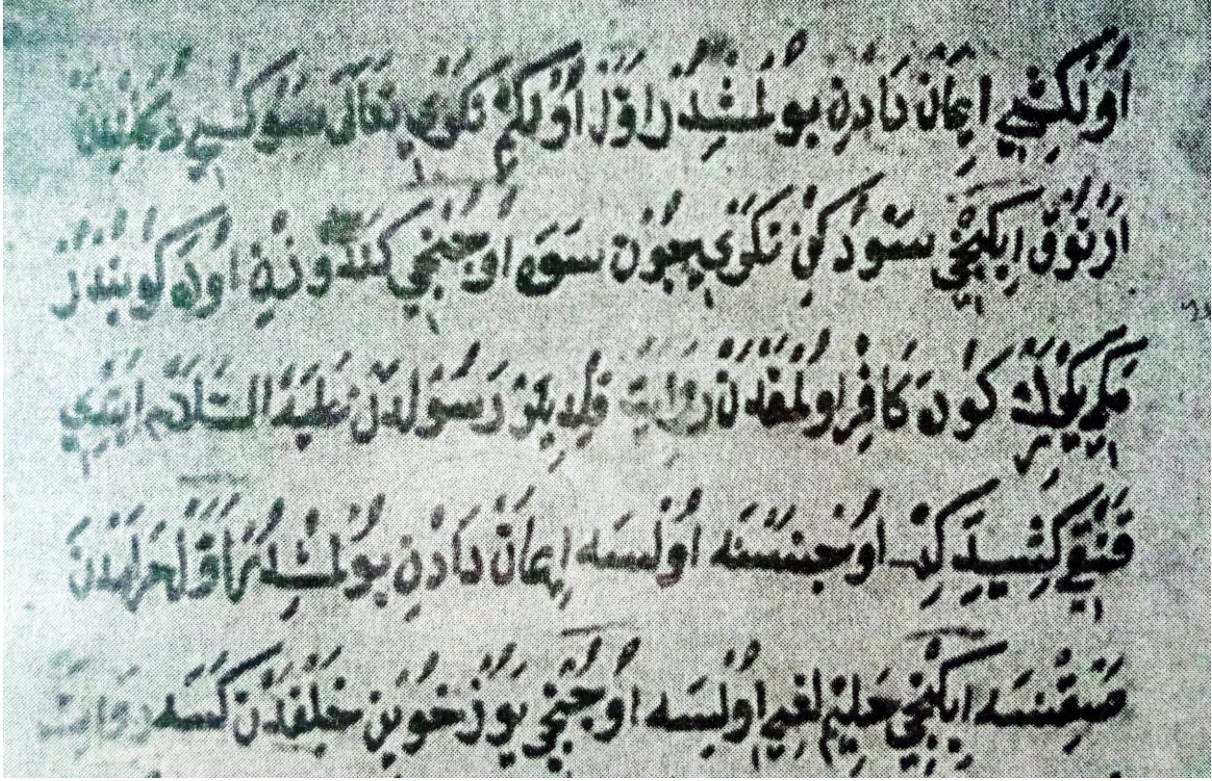 اول كشي ايمان دادن بولمشدر اول اولكم تكري تعالى سوكسي
ارتوق ايكنجي سودوكن تكريچون سوه اوجنجي كندوزن اوده كويندرر
يكرك كوره كافر اولمقدن روايت قلديلر رسولدن عليه السلام ايتدي
قنقي كشيده كه اوج نسنه اولسه ايمان دادن بولمشدر اول حرامدن
صقنسه ايكنجي حليملغي اولسه اوجنجي يوز خوين خلقدن كسه روايت